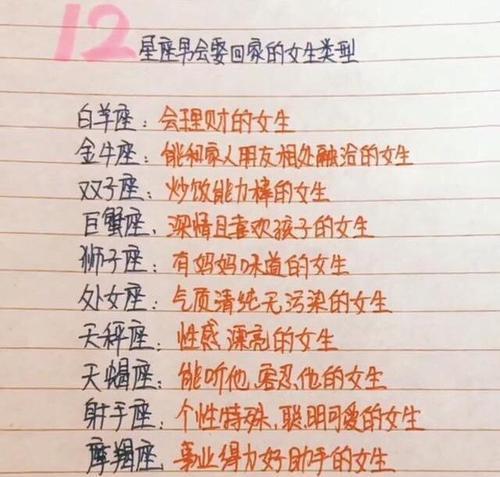 12星座男会娶回家的女生类型
白羊座：会理财的女生
金牛座：能和家人朋友相处融洽的女生
双子座：炒饭能力棒的女生
巨蟹座，深情且喜欢孩子的女生
狮子座：有妈妈味道的女生
处女座：气质清纯无污染的女生
天秤座：性感漂亮的女生
天蝎座：能听他、容忍他的女生
射手座：个性特殊，聪明可爱的女生
摩羯座，事业得力好助手的女生